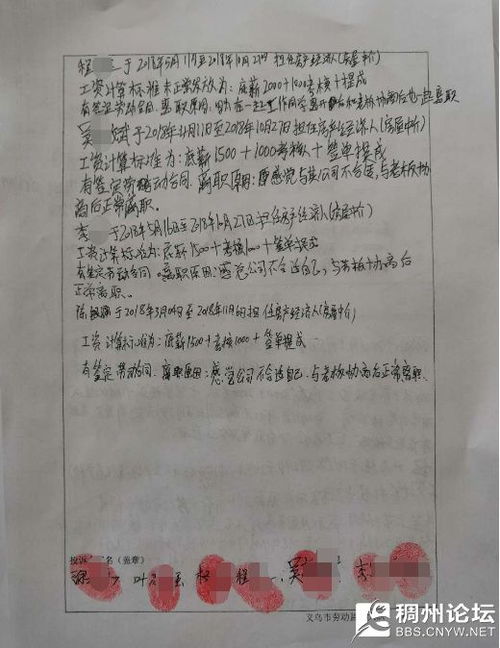 程 于2018年5月11日至2018年10月27日担任房产经济人(房屋中介)
工资计算标准未正常发放为:底薪2000+1000考核+提成
有签定劳动合同.离职原因:
吴 斌于2018年4月11日至2018年10月27日担任房产经济人(房屋中介)
工资计算标准为:底薪1500+1000考核+签单提成
有签定劳动合同,离职原因:感觉与其公司不合适,与老板协
商后正常离职.
李 于2018年5月16日至2018年10月27日担任房产经济人(房屋中介)
工资计算标准为:底薪1500+考核1000+签单提成
有签定劳动合同.离职原因:感觉公司不合适自己,与老板协商后
正常离职.
陈 于2018年3月04日至2018年11月 担任房产经济人(房屋中介)
工资计算标准为:底薪1500+考核1000+签单提成
有签定劳动合同.离职原因:感觉公司不合适自己.与老板协商后正常离职.
投诉 名(盖章)
徐 叶 杜 程 吴 李
义乌市劳动
稠州论坛
BBS.CNYW.NET